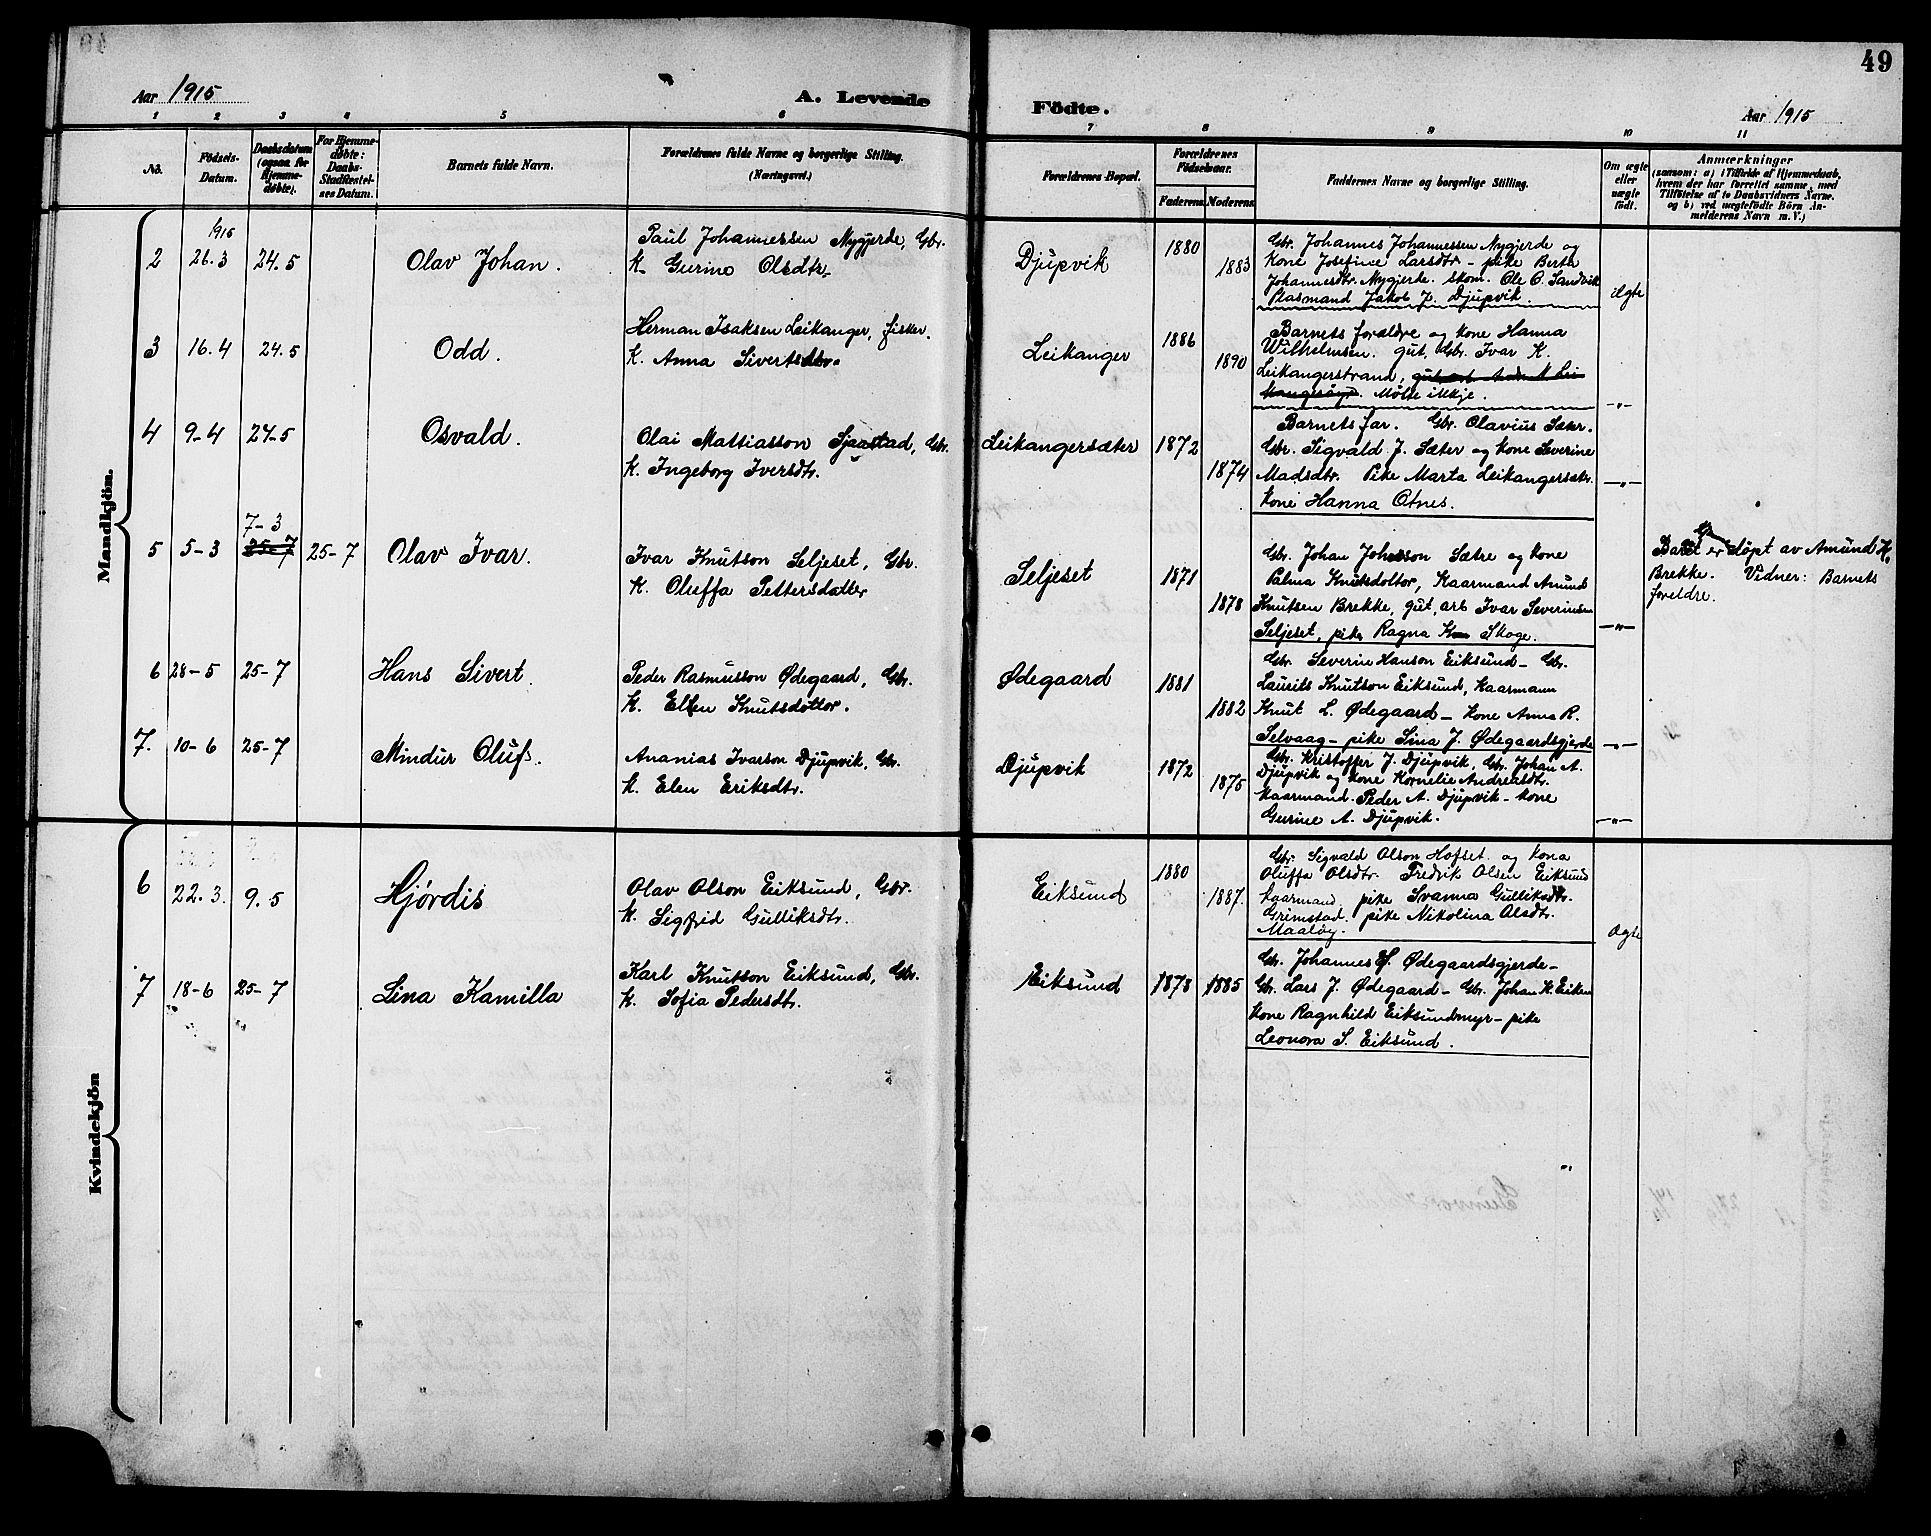 49
Aar 1915
A. Levende
Födte.
Aar 1915
1 2 3 4 5 6 7 8 9 10 11
No.
Fødsels-Datum.
Daabsdatum (ogsaa for Hjemme-døbte).
For Hjemme-døbte: Daabs-Stadfæstel-ses Datum.
Barnets fulde Navn.
Forældrenes fulde Navne og borgerlige Stilling.
(Næringsvei.)
Forældrenes Bopæl.
Forældrenes Fødselsaar.
Faderens Moderens
Faddernes Navne og borgerlige Stilling.
Om ægte eller uægte født.
Anmærkninger
(saasom: a) i Tilfælde af Hjemmedaab,
hvem der har forrettet samme, med
Tilføielse af to Daabsvidners Navne.
og b) ved uægtefødte Børn An-
melderens Navn m. V.)
Mandkjön.
1915
2 26.3 24.5 Olav Johan.
Paul Johannessen Nygjerde, Gbr.
K. Gurine Olsdtr.
Djupvik 1880 1883
Gbr. Johannes Johannessen Nygjerde og
Kone Josefine Larsdtr - pike Berta
Johannesdtr. Nygjerde. skom. Ole O. Sandvik
Plasmand Jakob J. Djupvik.
ægte
3 16.4 24.5 Odd.
Herman Isaksen Leikanger, fisker.
K. Anna Sivertsdtr.
Leikanger 1886 1890
Barnets forældre og kone Hanna
Wilhelmsen. gut, Gbr. Ivar K.
Leikangerstrand, Møtte ikkje.
-"-
4 9-4 24-5 Osvald.
Olai Mattiasson Sjaastad, Gbr.
K. Ingeborg Iversdtr.
Leikangersæter 1872 1874
Barnets far. Gbr. Olavius Sæter.
Gbr. Sigvald J. Sæter og kone Severine
Madsdtr. Pike Marta Leikangersætr.
Kone Hanna Otnes.
-"-
7-3
5 5-3 25-7 25-7 Olav Ivar.
Ivar Knutson Seljeset, Gbr.
K. Oluffa Pettersdatter
Seljeset 1871 1878
Gbr. Johan Johsson Sætre og kone
Palma Knutsdottor, Kaarmand Amund
Knutsen Brekke, gut, arb Ivar Severinsen
Seljeset, pike Ragna Skoge.
-"-
Barnet er døpt av Amund K.
Brekke. Vidner: Barnets
foreldre.
6 28-5 25-7 Hans Sivert.
Peder Rasmusson Ødegaard, Gbr.
K. Ellen Knutsdottor.
Ødegaard 1881 1882
Gbr. Severin Hanson Eiksund - Gbr.
Laurits Knutson Eiksund, Kaarmann
Knut L. Ødegaard - kone Anna R.
Selvaag - pike Lina J. Ødegaardsgjerde
-"-
7. 10-6 25-7 Mindur Oluf.
Ananias Ivarson Djupvik, Gbr.
K. Elen Eriksdtr.
Djupvik 1872 1875
Gbr. Kristoffer J. Djupvik, Gbr. Johan A.
Djupvik og kone Kornelie Andreasdtr.
Kaarmand Peder A. Djupvik - kone
Gurine A. Djupvik.
-"-
Kvindekjön
6 22.3. 9.5 Hjørdis
Olav Olson Eiksund, Gbr.
K. Sigfrid Gulliksdtr.
Eiksund 1880 1887.
Gbr. Sigvald Olson Hofset. og kona
Oluffa Olsdtr. Fredrik Olsen Eiksund
kaarmand. pike Svanna Gulliksdtr.
Grimstad. pike Nikolina Olsdtr.
Maaløy.
ægte
7 18-6 25-7 Lina Kamilla
Karl Knutson Eiksund, Gbr.
K. Sofia Pedersdtr.
Eiksund 1878 1885
Gbr. Johannes Ødegaardsgjerde -
Gbr. Lars J. Ødegaard - Gbr. Johan K. Eiksun
Kone Ragnhild Eiksundmyr - pike
Leonora S. Eiksund.